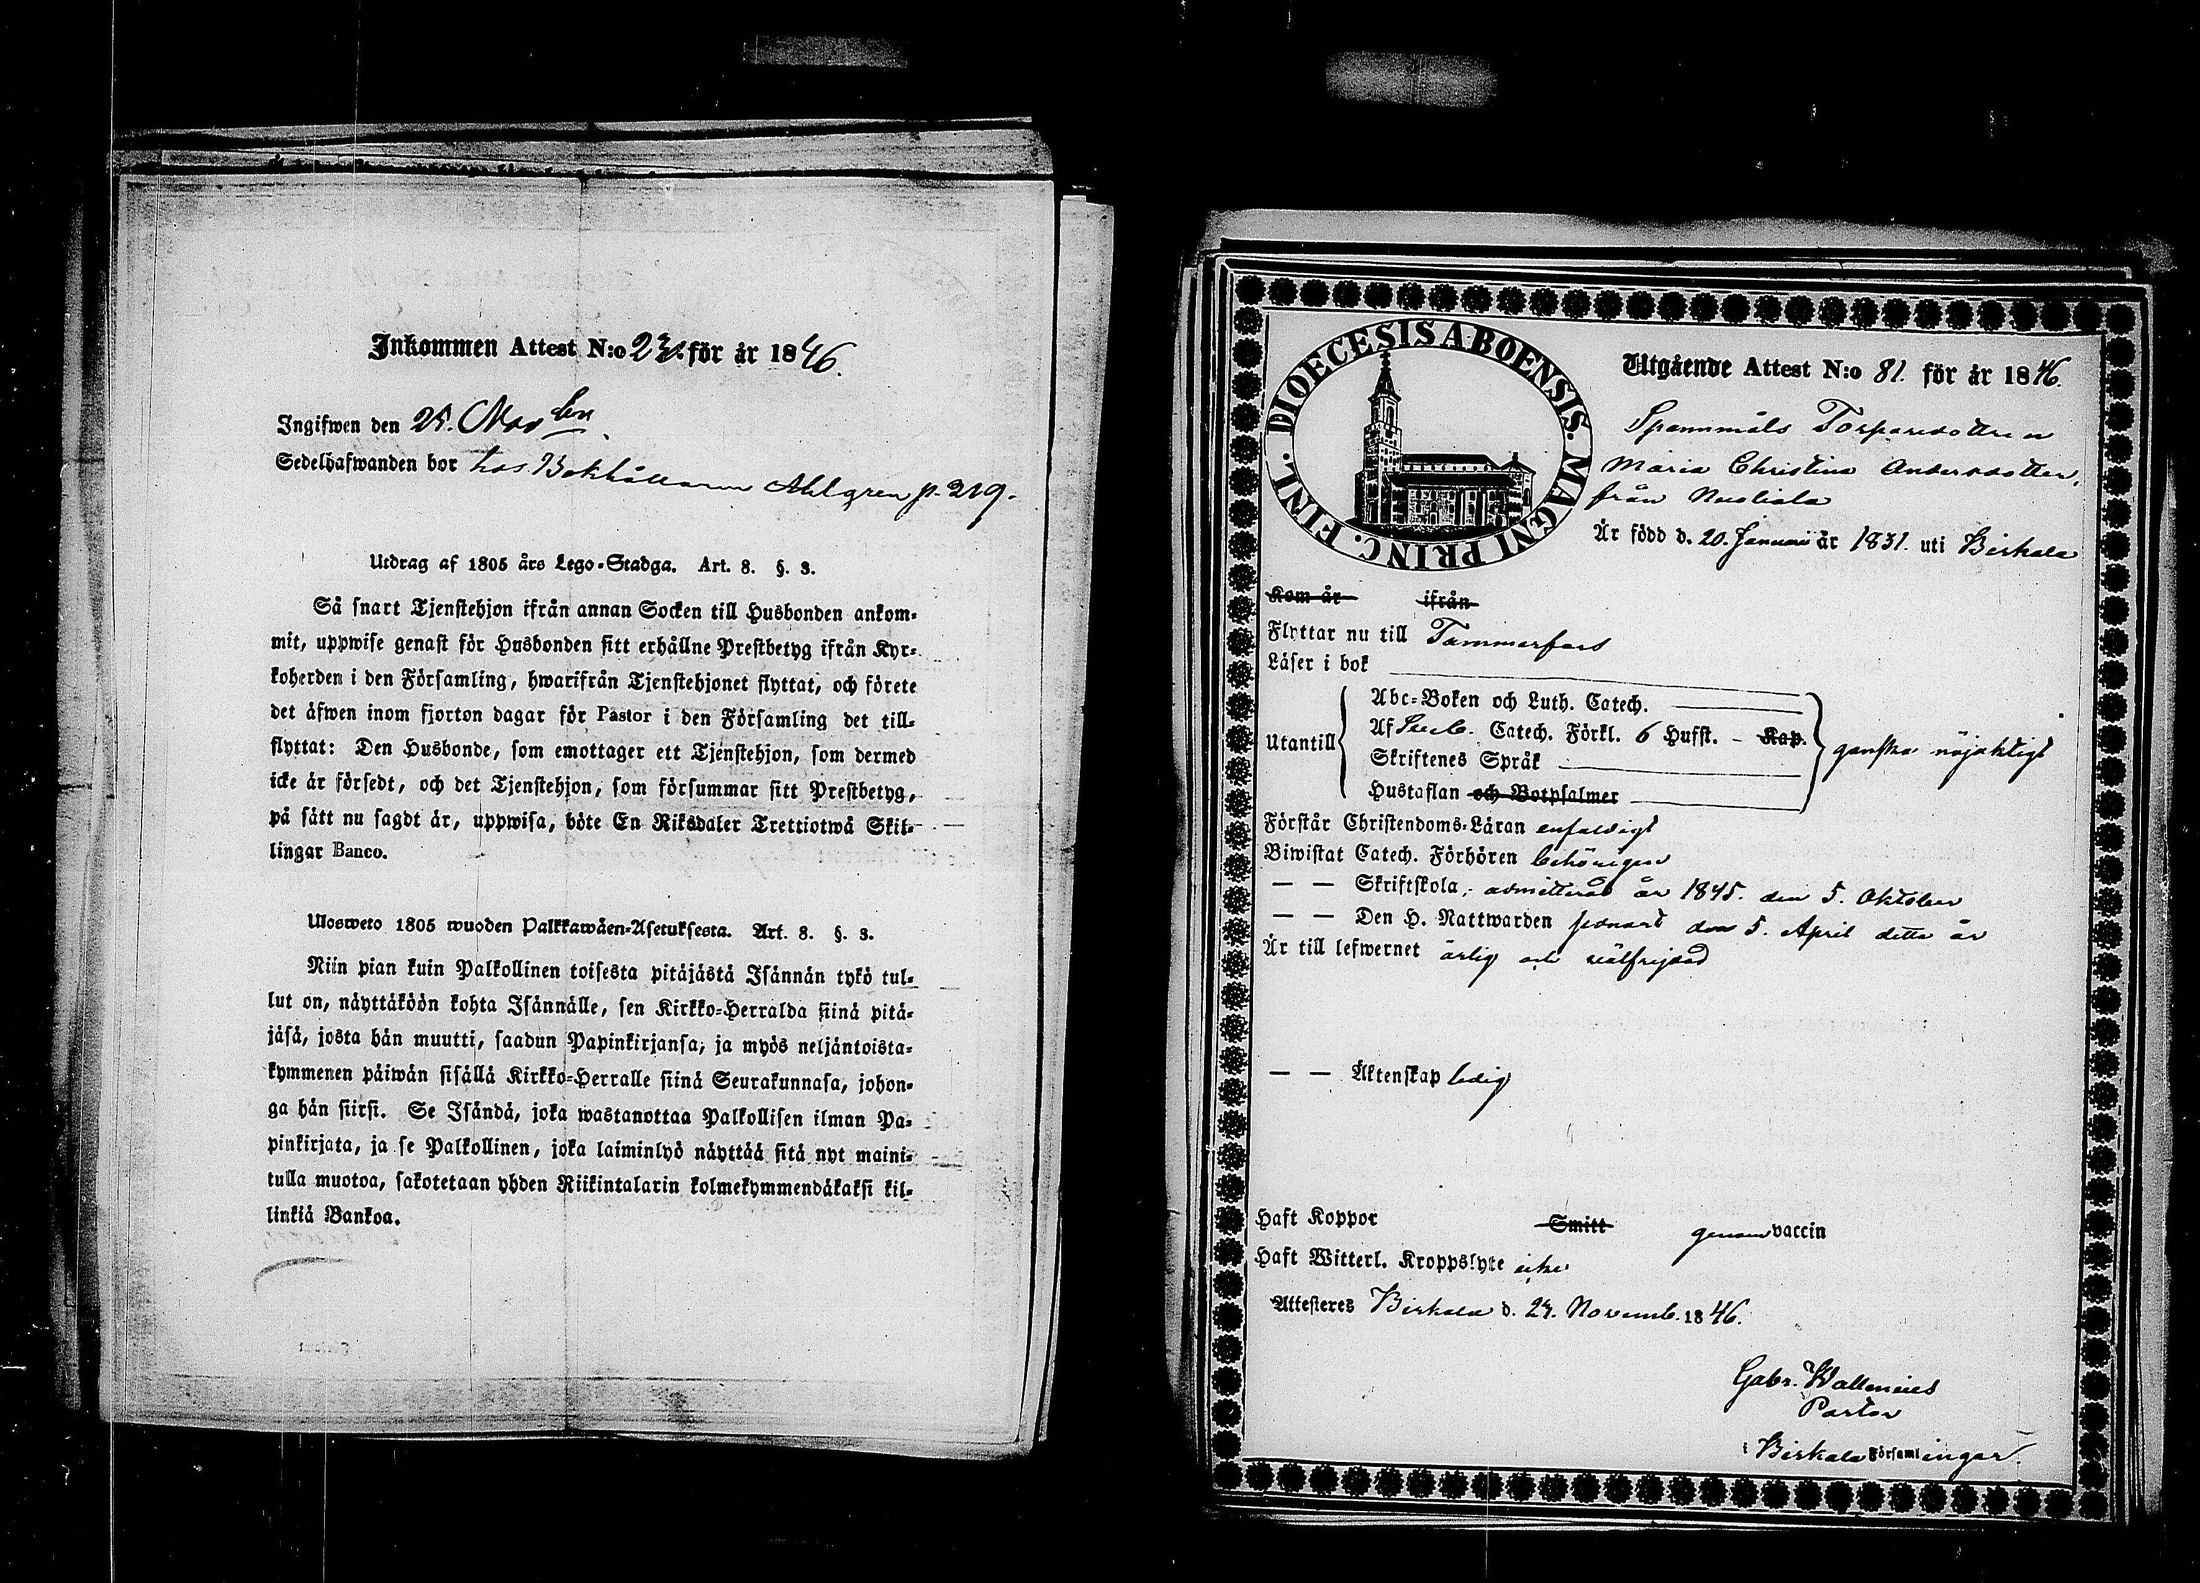 Inkommen Attest N:o 23. för år 1846.
Ingifwen den 25. Novbn
Sedelhafwanden bor hos Bokhållaren Ahlgren p. 219.
Utdrag af 1805 års Lego-Stadga. Art. 8. §. 3.
Så snart Tjenstehjon ifrån annan Socken till Husbonden ankom-
mit, uppwise genast för Husbonden sitt erhållne Prestbetyg ifrån Kyr-
koherden i den Församling, hwarifrån Tjenstehjonet flyttat, och förete
det äfwen inom fjorton dagar för Pastor i den Församling det till-
flyttat: Den Husbonde, som emottager ett Tjenstehjon, som dermed
icke är försedt, och det Tjenstehjon, som försummar sitt Prestbetyg,
på sätt nu sagdt är, uppwisa, böte En Riksdaler Trettiotwå Skil-
lingar Banco.
Ulosweto 1805 wuoden Palkkawäen-Asetuksesta. Art. 8. §. 3.
Niin pian kuin Palkollinen toisesta pitäjästä Isännän tykö tul-
lut on, näyttäköön kohta Isännälle, sen Kirkko-Herralda siinä pitä-
jäsä, josta hän muutti, saadun Papinkirjansa, ja myös neljäntoista-
kymmenen päiwän sisällä Kirkko-Herralle siinä Seurakunnasa, johon-
ga hän siirsi. Se Isändä, joka wastanottaa Palkollisen ilman Pa-
pinkirjata, ja se Palkollinen, joka laiminlyö näyttää sitä nyt maini-
tulla muotoa, sakotetaan yhden Riikintalarin kolmekymmendäkaksi kil-
linkiä Bankoa.
DIOECESIS ABOENSIS. MAGNI PRINC. FINL.
Utgående Attest N:o 81. för år 1846.
Spannmåls Torparedottren
Maria Christina Andersdotter,
från Nuoliala
Är född d. 20. Januari år 1831. uti Birkala
Kom år ifrån
Flyttar nu till Tammerfors
Läser i bok
Abc-Boken och Luth. Catech.
Utantill Af Sveb. Catech. Förkl. 6 Hufst. - Kap. ganska nöjaktigt
Skriftenes Språk
Hustaflan och Botpsalmer
Förstår Christendoms-Läran enfaldigt
Biwistat Catech. Förhören behörigen
— — Skriftskola, admitterad år 1845. den 5. Oktober
— — Den H. Nattwarden senast den 5. April detta år
Är till lefwernet ärlig och välfrejdad
— — Äktenskap ledig
Haft Koppor Smitt genom vaccin
Haft Witterl. Kroppslyte icke
Attesteres Birkala d. 24. Novemb. 1846.
Gabr. Wallenius
Pastor
i Birkala Församlingar.